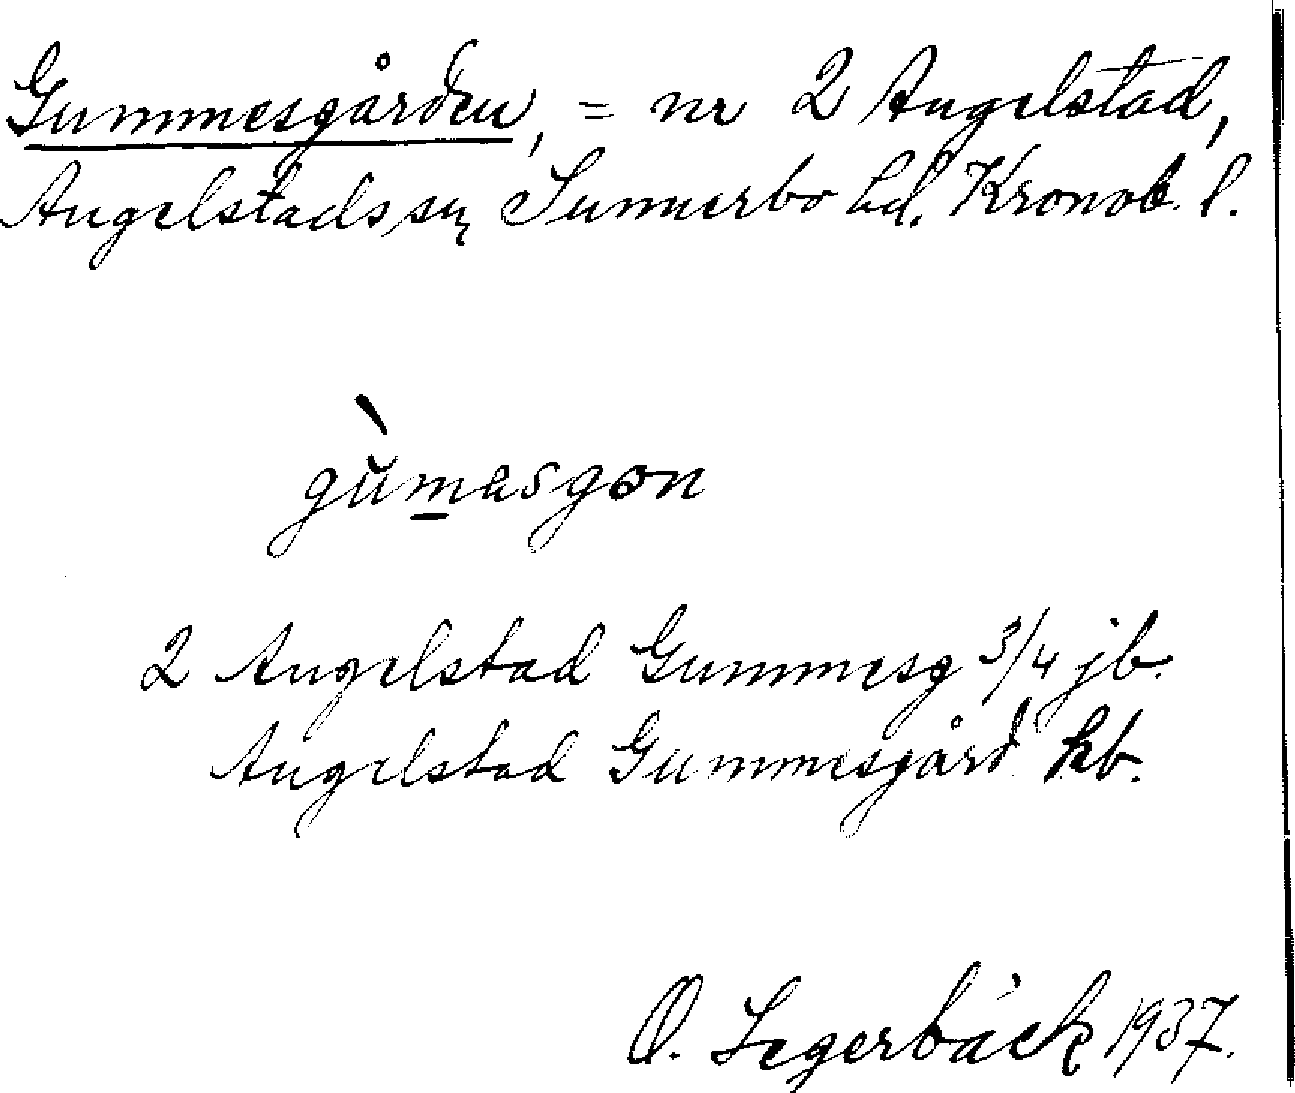 Gummesgården, = nr 2 Angelstad,
Angelstads sn, Sunnerbo hd. Kronob. l.
gùmasgon
2 Angelstad Gummesg 3/4 jb.
Angelstad Gummesgård kb.
O. Segerbäck 1937.